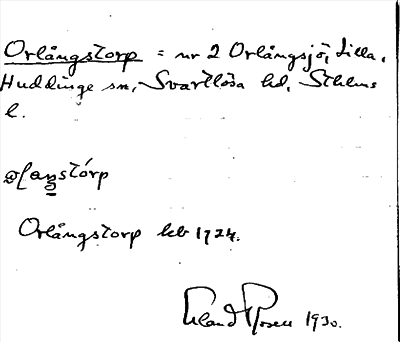 Orlångstorp = nr 2 Orlångsjö, Lilla,
Huddinge sn, Svartlösa hd, Sthlms
l.
Orlångstorp leb 1724.
Erland Rosell 1930.